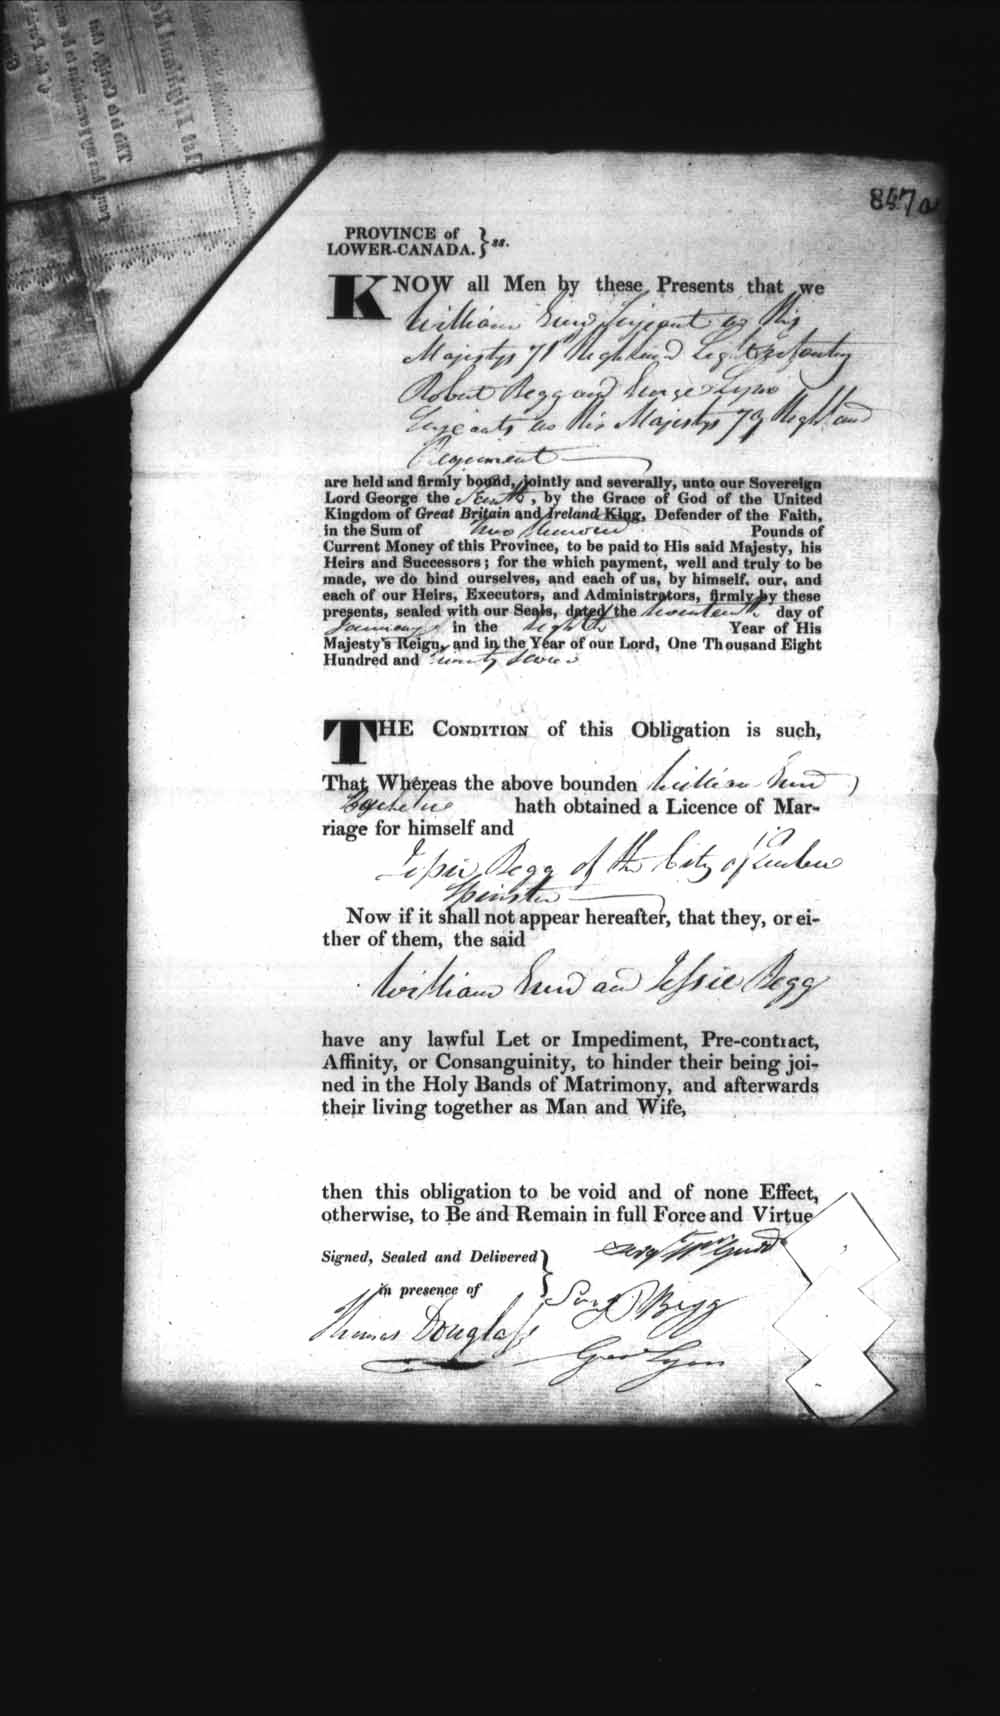 847a
PROVINCE of
LOWER-CANADA. } ss.
KNOW all Men by these Presents that we
William Serjeant in His
Majestys 71st Highland Light Infantry
Robert Begg and George Lyon
Serjeants in His Majestys 79 Highland
Regiment
are held and firmly bound, jointly and severally, unto our Sovereign
Lord George the Fourth, by the Grace of God of the United
Kingdom of Great Britain and Ireland King, Defender of the Faith,
in the Sum of Two Hundred Pounds of
Current Money of this Province, to be paid to His said Majesty, his
Heirs and Successors; for the which payment, well and truly to be
made, we do bind ourselves, and each of us, by himself, our, and
each of our Heirs, Executors, and Administrators, firmly by these
presents, sealed with our Seals, dated the day of
January in the eighth Year of His
Majesty's Reign, and in the Year of our Lord, One Thousand Eight
Hundred and twenty seven
THE CONDITION of this Obligation is such,
That Whereas the above bounden William
Bachelor hath obtained a Licence of Mar-
riage for himself and
Jessie Begg of the City of Quebec
Spinster
Now if it shall not appear hereafter, that they, or ei-
ther of them, the said
William and Jessie Begg
have any lawful Let or Impediment, Pre-contract,
Affinity, or Consanguinity, to hinder their being joi-
ned in the Holy Bands of Matrimony, and afterwards
their living together as Man and Wife,
then this obligation to be void and of none Effect,
otherwise, to Be and Remain in full Force and Virtue
Signed, Sealed and Delivered }
in presence of
Serjt R Begg
Thomas Douglass
Geo Lyon